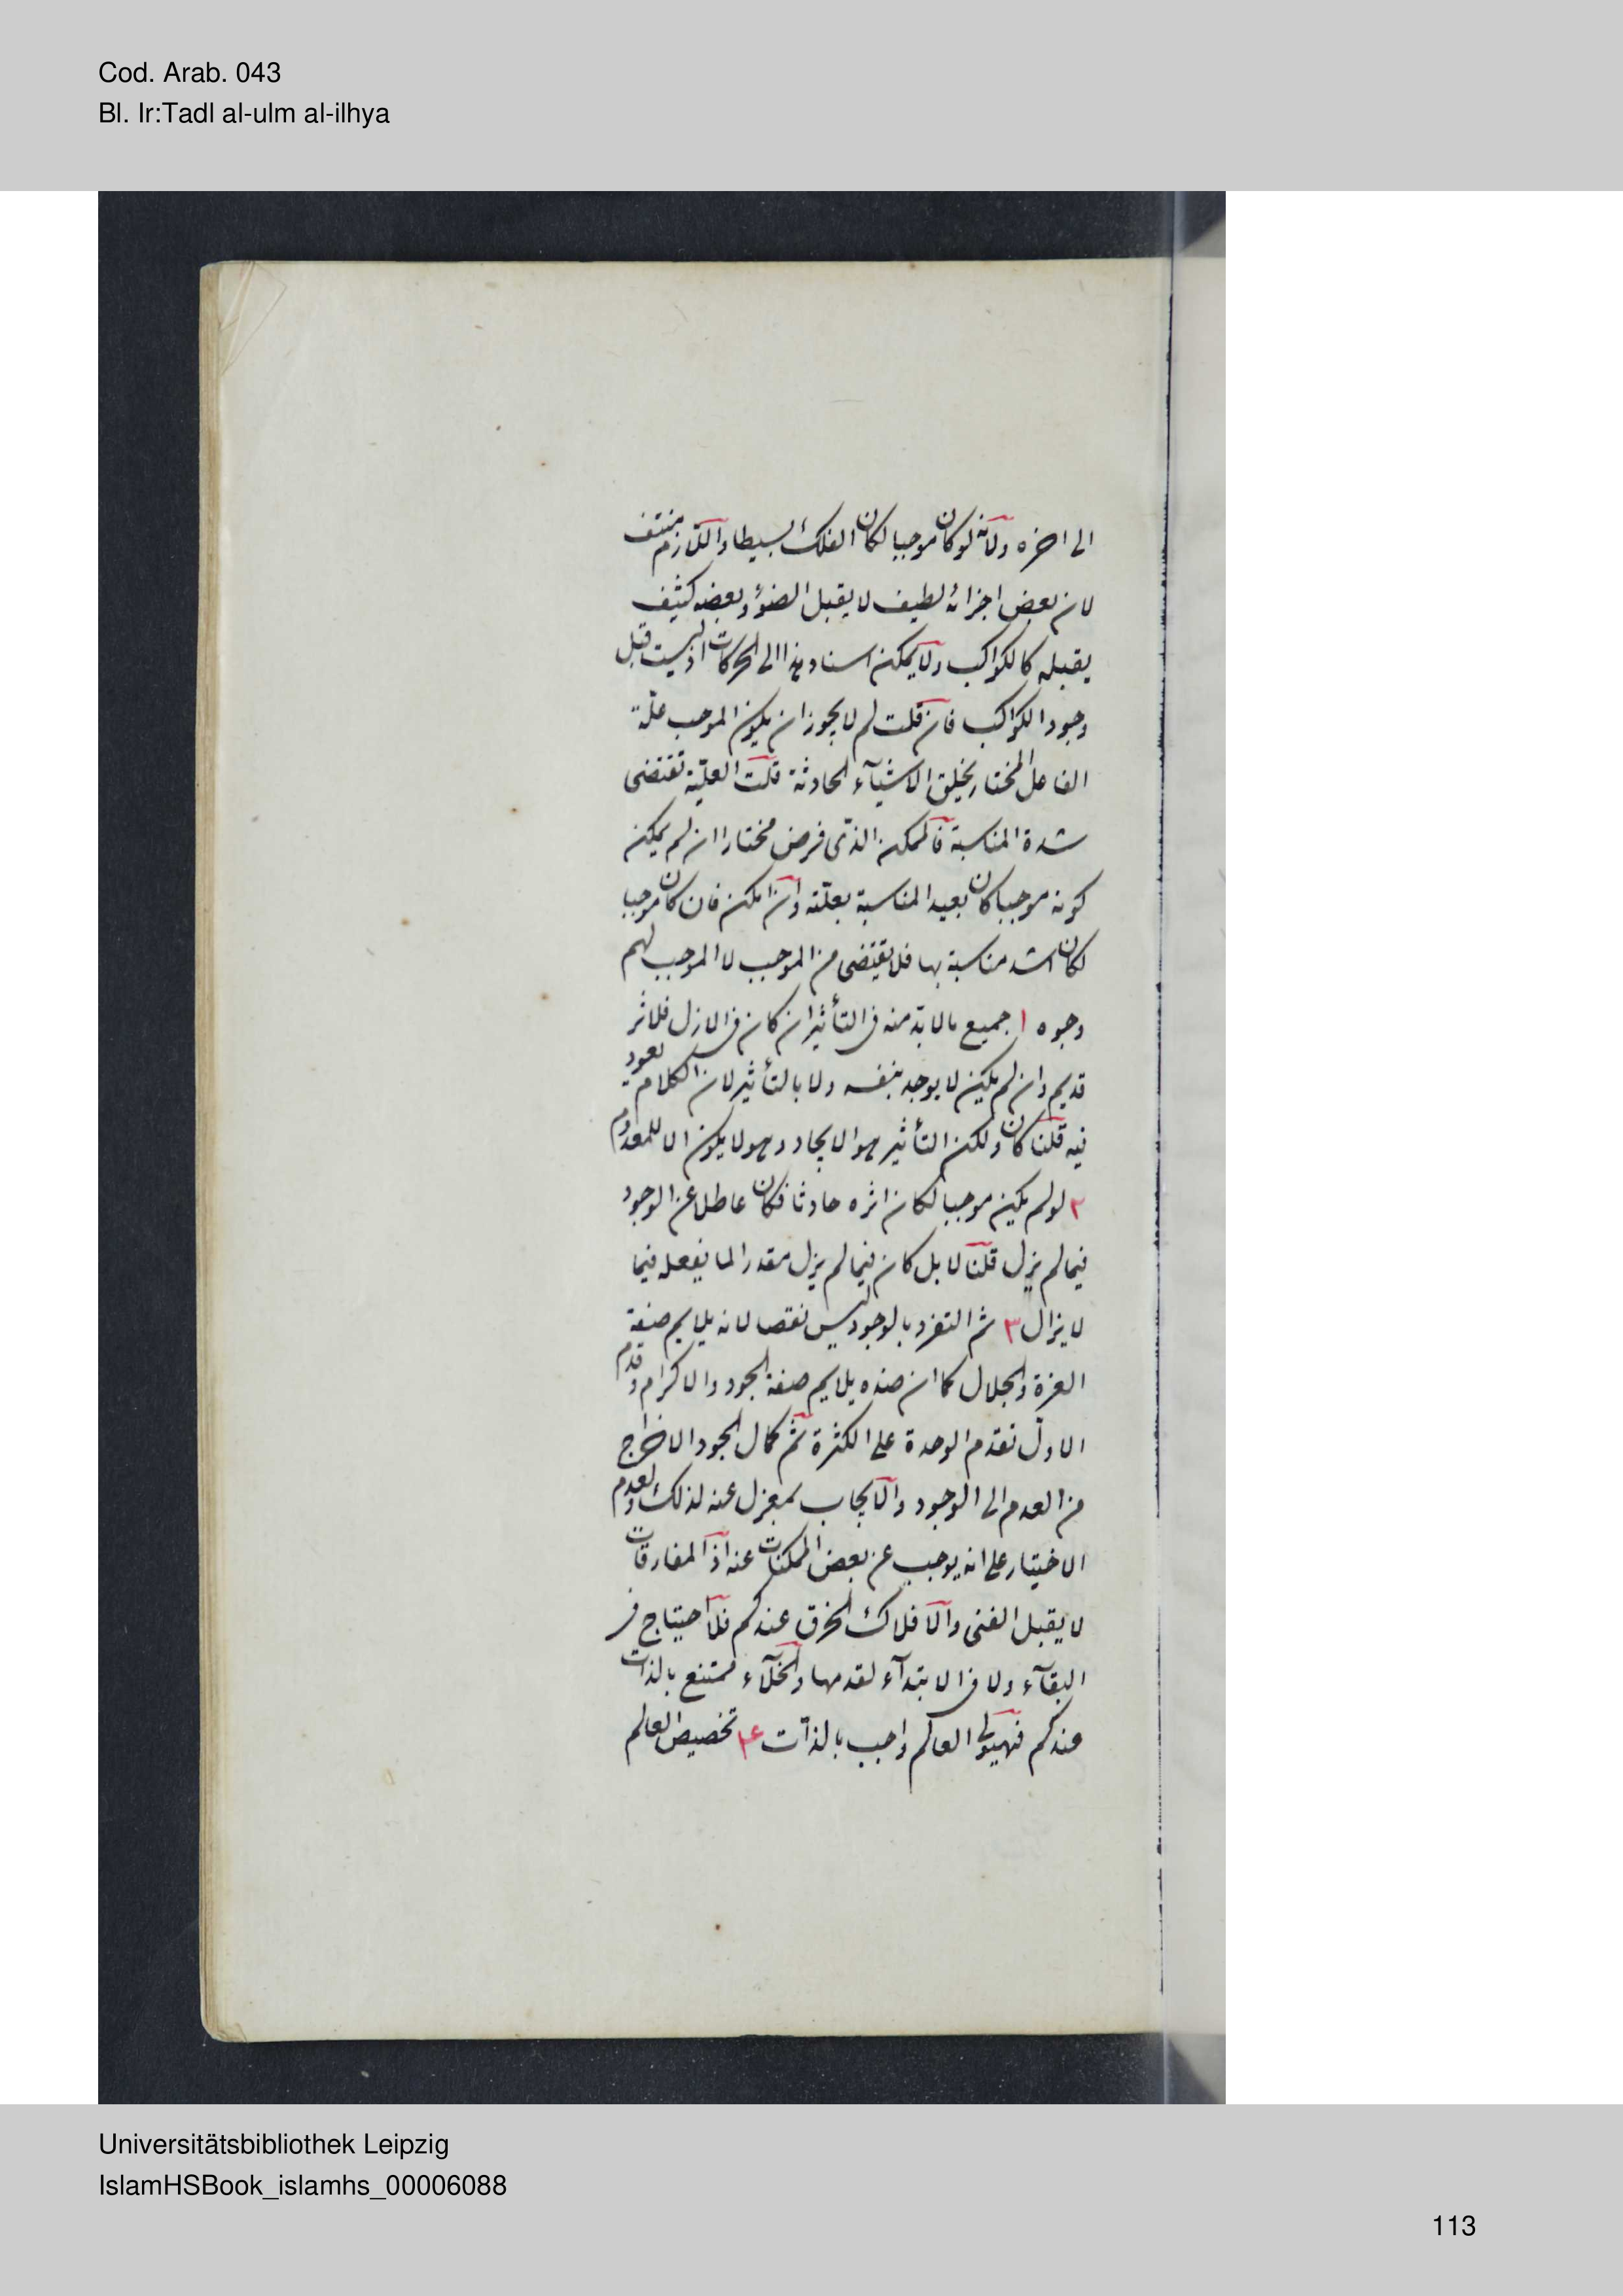 Cod. Arab. 043
Bl. Ir:Tadl al-ulm al-ilhya
الى اخره ولانه لو كان موجبا لكان الفلك بسيطا واللازم منتف
لان بعض اجزائه لطيف لا يقبل الضوؤ وبعضه كثيف
يقبله كالكواكب ولا يمكن اسناد هذا الى الحركات اذ ليست قبل
وجود الكواكب فان قلت لم لا يجوز ان يكون الموجب علّة
الفاعل المختار يخلق الاشيآء الحادثة قلت العلّية تقتضى
شدة المناسبة فالممكن الذى فرض مختارا ان لم يمكن
كونه موجبا كان بعيد المناسبة بعلّته وان امكن فان كان موجبا
لكان اشد مناسبة بها فلا يقتضى من الموجب لا الموجب لهم
وجوه ١ جميع مالابدّ منه فى التأثير ان كان فى الازل فلاثر
قديم وان لم يكن لا يوجد بنفسه ولا بالتأثير لان الكلام يعود
فيه قلنا كان ولكن التأثير هو الايجاد وهو لا يكون الا للمعدوم
٢ لو لم يكن موجبا لكان اثره حادثا فكان عاطلا عن الوجود
فيما لم يزل قلنا لا بل كان فيما لم يزل مقدرا لما يفعله فيما
لا يزال ٣ ثم التفرد بالوجود ليس نقصا لانه يلايم صفة
العزة والجلال كما ان ضده يلايم صفة الجود والاكرام وقدم
الاول تقدم الوحدة على الكثرة ثم كمال الجود الاخراج
من العدم الى الوجود والايجاب بمعزل عنه لذلك ولعدم
الاختيار على انه يوجب عن بعض الممكنات عنه اذ المفارقات
لا يقبل الفنى والافلاك الخرق عندكم فلا احتياج فى
البقآء ولا فى الابتدآء لقدمها والخلآء ممتنع بالذات
عندكم فهيولى العالم واجب بالذات ٤ تخصيص العالم
Universitätsbibliothek Leipzig
IslamHSBook_islamhs_00006088
113